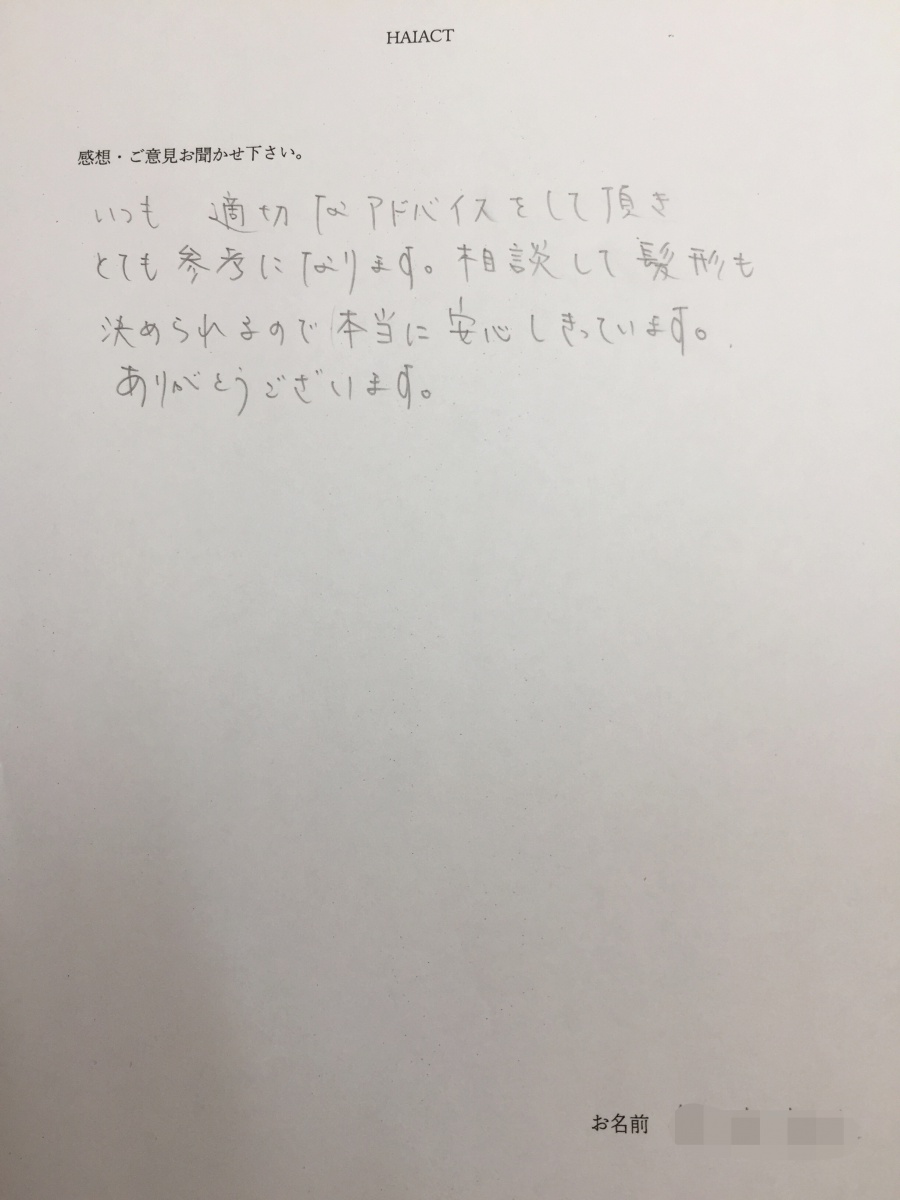 HAIACT
感想・ご意見お聞かせ下さい。
いつも 適切なアドバイスをして頂き
とても参考になります。相談して髪形も
決められるので本当に安心しきっています。
ありがとうございます。
お名前